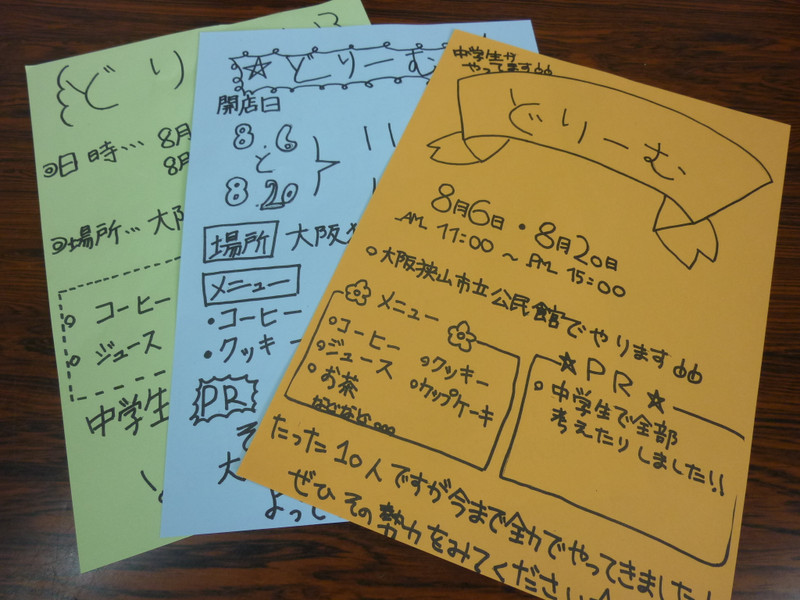 どり
日時… 8月
8月
場所… 大
コーヒー
ジュース
中学生
☆どりーむ
開店日
8.6
と
8.20
場所 大阪
メニュー
・コーヒー
・クッキー
PR
そ
大
よっ
中学生が
やってます
どりーむ
8月6日・8月20日
AM 11:00 ～ AM 15:00
大阪狭山市立公民館でやります
メニュー
コーヒー
ジュース
お茶
などなど…
クッキー
カップケーキ
☆PR☆
中学生で全部
考えたりしました!!
たった10人ですが今まで全力でやってきました!
ぜひその勢力をみてください